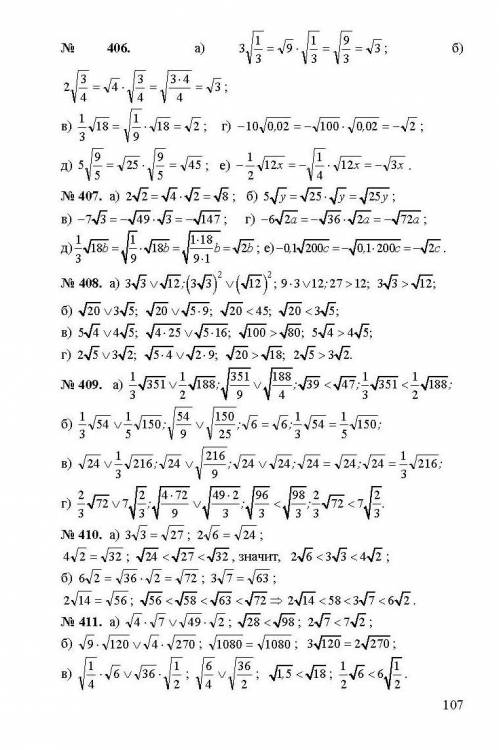 № 406. а) 3√(1/3) = √9 · √(1/3) = √(9/3) = √3 ; б)
2√(3/4) = √4 · √(3/4) = √((3·4)/4) = √3 ;
в) (1/3)√18 = √(1/9) · √18 = √2 ; г) −10√0,02 = −√100 · √0,02 = −√2 ;
д) 5√(9/5) = √25 · √(9/5) = √45 ; е) −(1/2)√12x = −√(1/4) · √12x = −√3x .
№ 407. а) 2√2 = √4 · √2 = √8 ; б) 5√y = √25 · √y = √25y ;
в) −7√3 = −√49 · √3 = −√147 ; г) −6√2a = −√36 · √2a = −√72a ;
д) (1/3)√18b = √(1/9) · √18b = √((1·18)/(9·1) b) = √2b ; е) −0,1√200c = −√0,1·200c = −√2c .
№ 408. а) 3√3 ∨ √12 ; (3√3)² ∨ (√12)² ; 9·3 ∨ 12; 27 > 12; 3√3 > √12;
б) √20 ∨ 3√5; √20 ∨ √5·9; √20 < 45; √20 < 3√5;
в) 5√4 ∨ 4√5; √4·25 ∨ √5·16; √100 > √80; 5√4 > 4√5;
г) 2√5 ∨ 3√2; √5·4 ∨ √2·9; √20 > √18; 2√5 > 3√2.
№ 409. а) (1/3)√351 ∨ (1/2)√188; √(351/9) ∨ √(188/4); √39 < √47; (1/3)√351 < (1/2)√188;
б) (1/3)√54 ∨ (1/5)√150; √(54/9) ∨ √(150/25); √6 = √6; (1/3)√54 = (1/5)√150;
в) √24 ∨ (1/3)√216; √24 ∨ √(216/9); √24 ∨ √24; √24 = √24; √24 = (1/3)√216;
г) (2/3)√72 ∨ 7√(2/3); √((4·72)/9) ∨ √((49·2)/3); √(96/3) < √(98/3); (2/3)√72 < 7√(2/3).
№ 410. а) 3√3 = √27 ; 2√6 = √24 ;
4√2 = √32 ; √24 < √27 < √32 , значит, 2√6 < 3√3 < 4√2 ;
б) 6√2 = √36 · √2 = √72 ; 3√7 = √63 ;
2√14 = √56; √56 < √58 < √63 < √72 ⇒ 2√14 < 58 < 3√7 < 6√2 .
№ 411. а) √4 · √7 ∨ √49 · √2 ; √28 < √98 ; 2√7 < 7√2 ;
б) √9 · √120 ∨ √4 · √270 ; √1080 = √1080 ; 3√120 = 2√270 ;
в) √(1/4) · √6 ∨ √36 · √(1/2) ; √(6/4) ∨ √(36/2) ; √1,5 < √18 ; (1/2)√6 < 6√(1/2) .
107